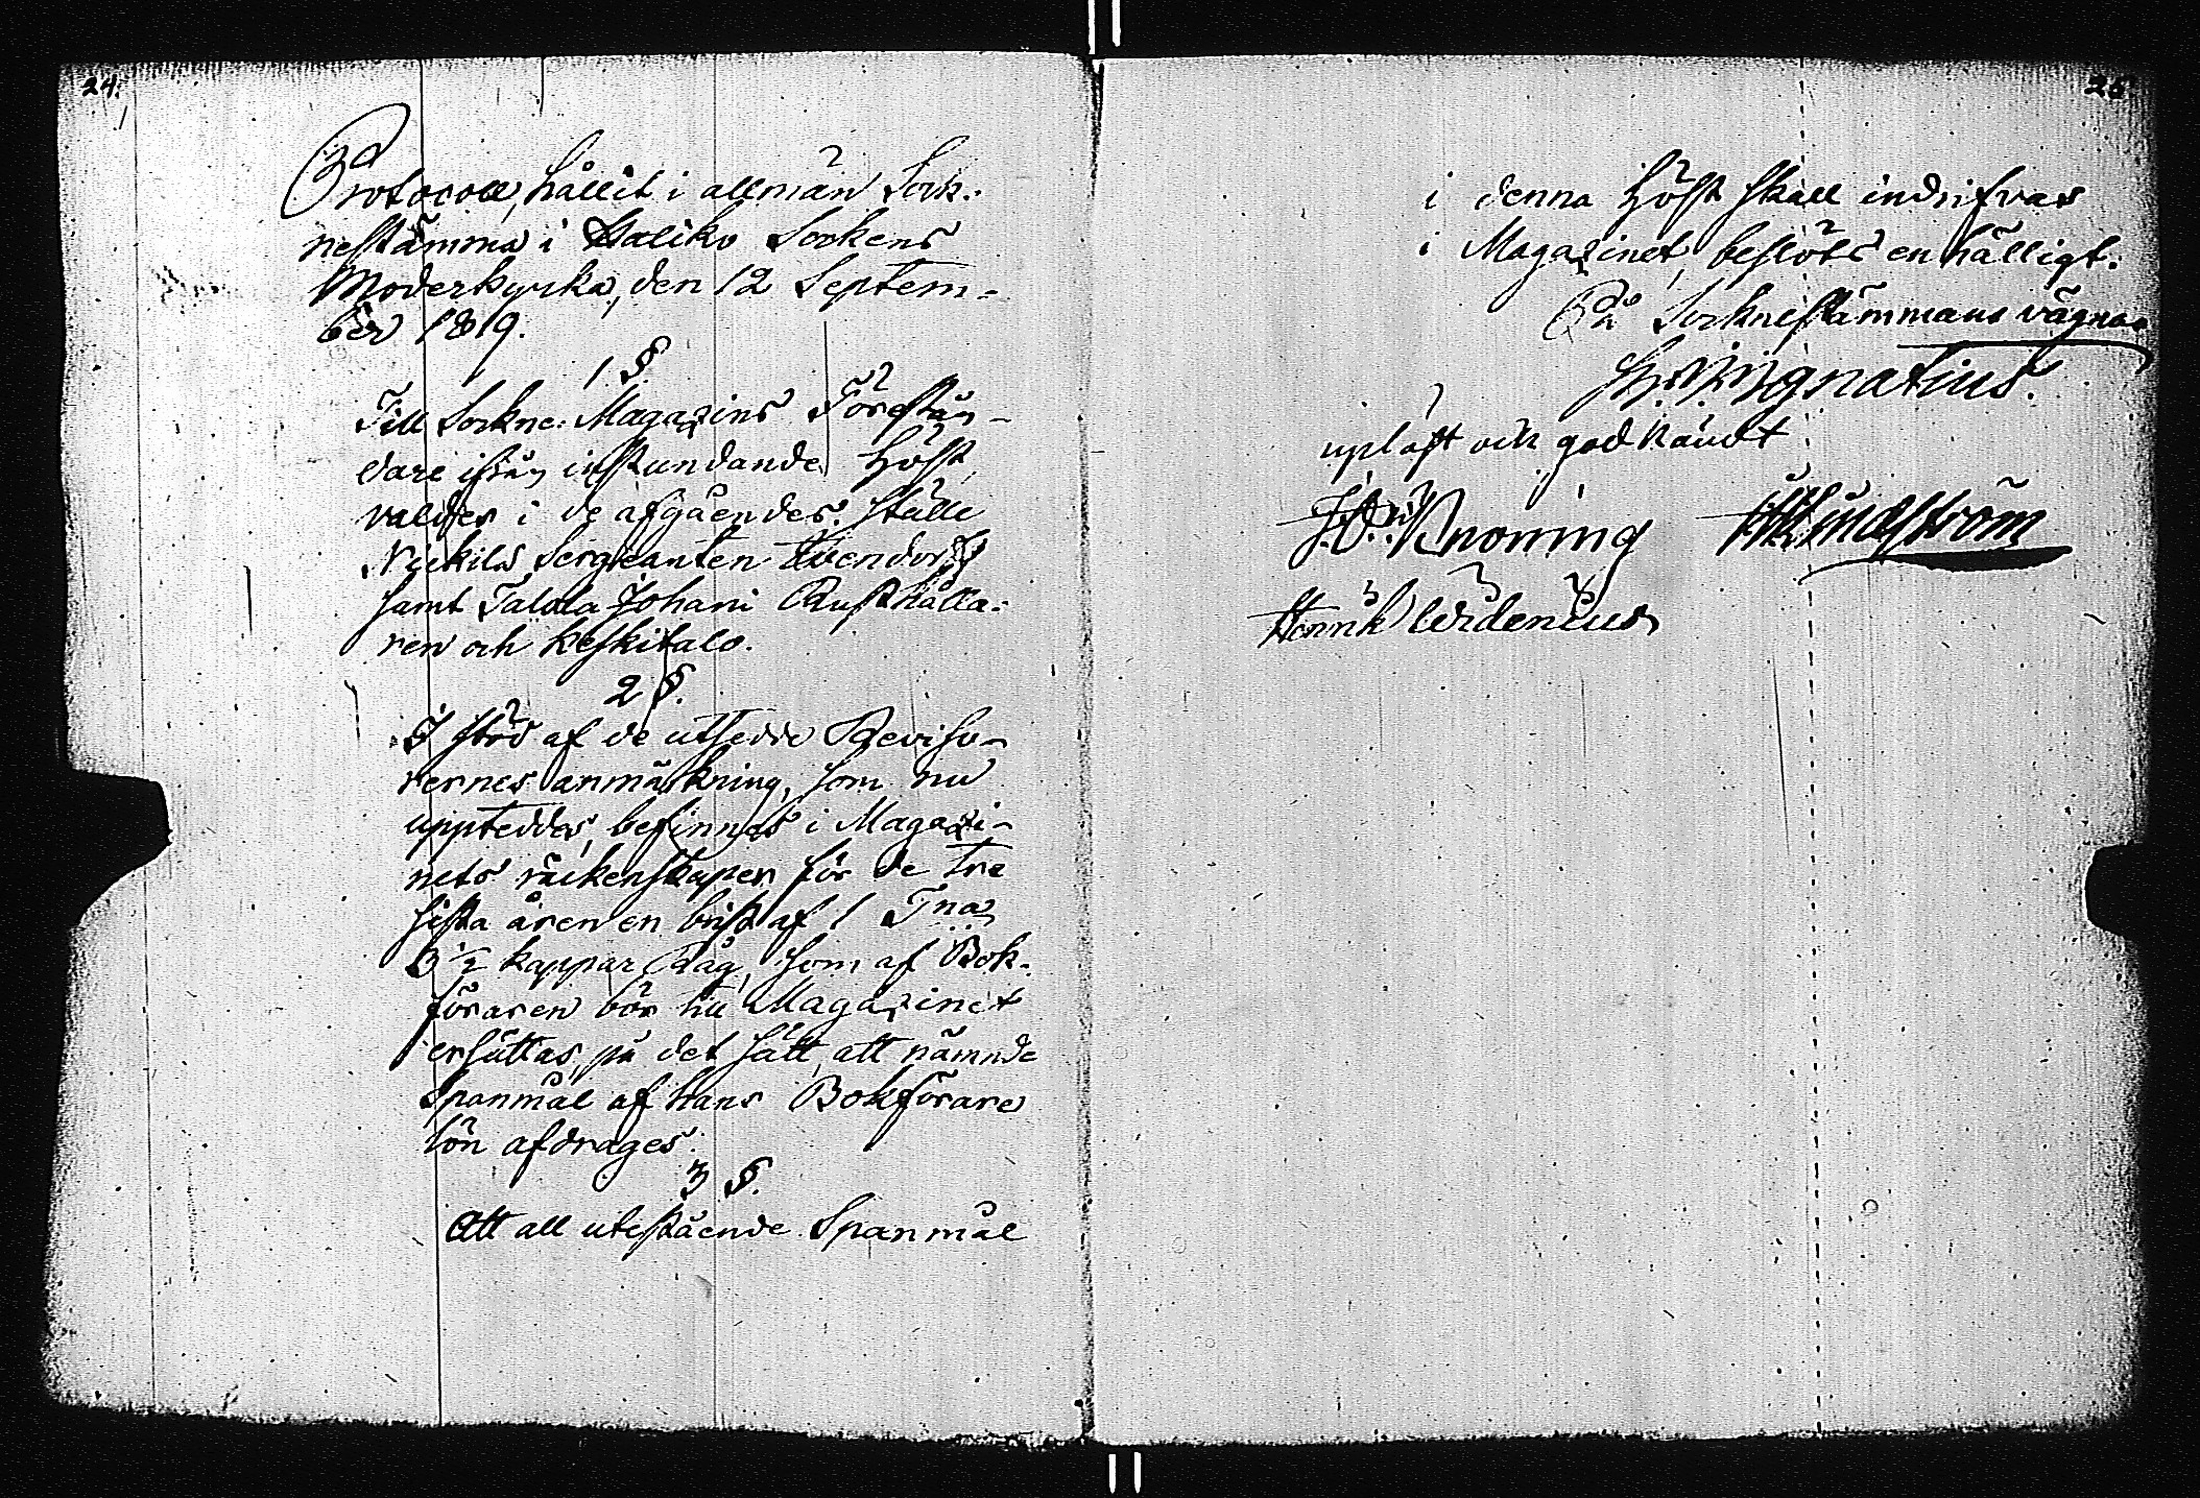 24.
Protocoll, hållit i allmän Sock-
nestämma i Haliko Sockens
Moderkyrka, den 12 Septem-
ber 1819.
1 §.
Till Sockne Magazins Förestån-
dare ifrån instundande Höst
valdes i de afgåendes ställe
Nickils Sergeanten
samt Talola Johani Rusthålla-
ren och Keskitalo.
2 §.
I stöd af de utsedde Reviso-
rernes anmärkning, som nu
uppteddes, befinnes i Magazi-
nets räkenskaper för de tre
sista åren en brist af 1 Tna
3 1/2 kappar Råg, som af Bok-
föraren bör till Magazinet
ersättas, på det sätt, att nämnde
Spanmål af hans Bokförare
lön afdrages.
3 §.
Att all utestående Spanmål
25
i denna Höst skall indrifvas
i Magazinet, beslöts enhälligt.
På Socknestämmans vägnar
Ignatius.
upläst och godkändt
Kronring Lindström
Henrik Widenius